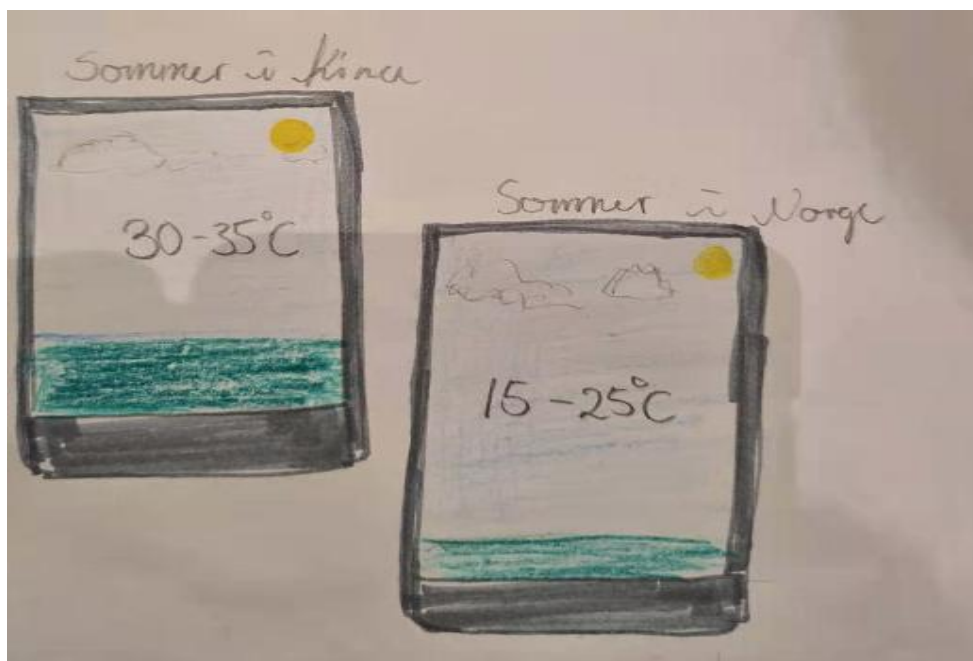 Sommer i Kina
30-35°C
Sommer i Norge
15-25°C